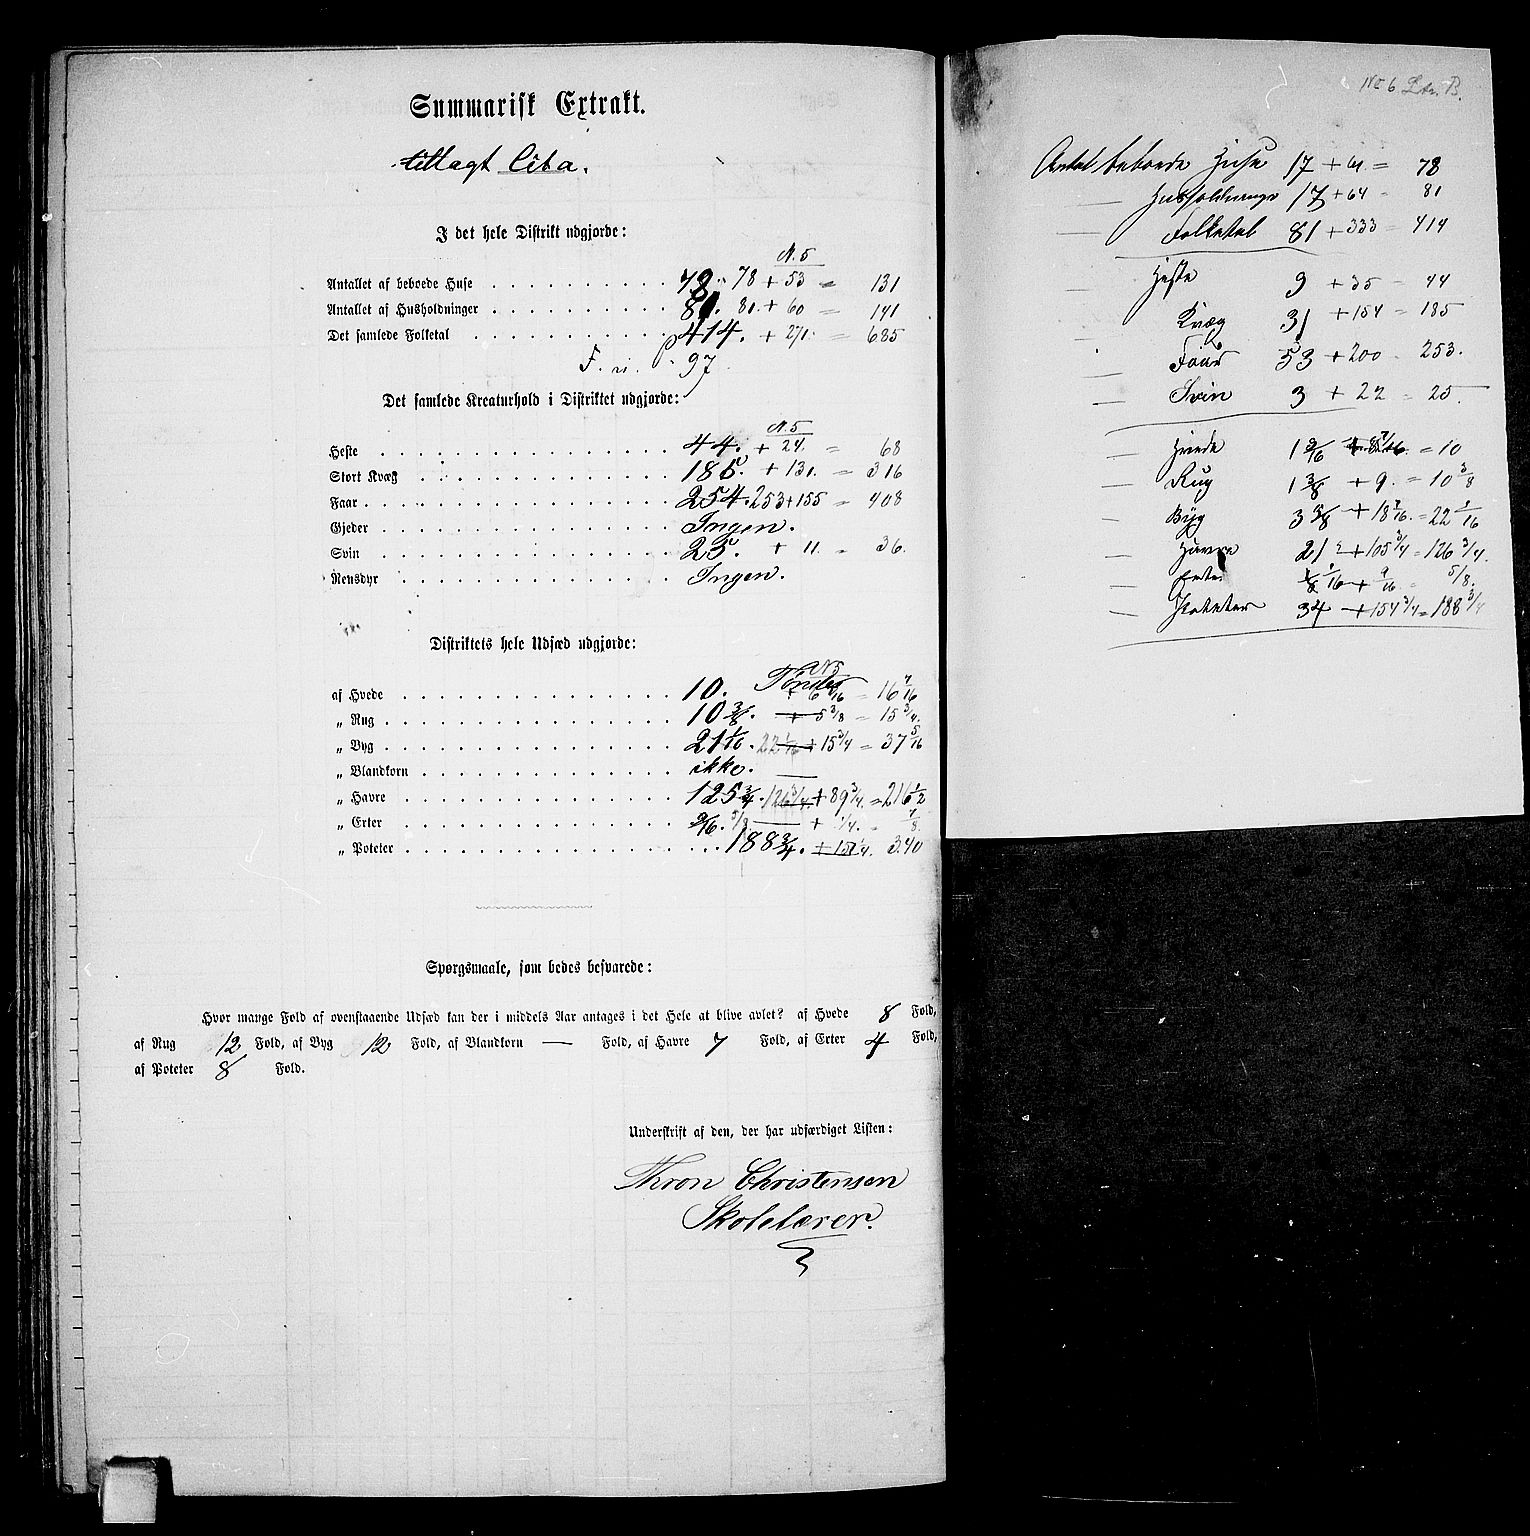 Summarisk Extrakt.
tillagt Lita.
I det hele Distrikt udgjorde:
N. 5
Antallet af beboede Huse 78. 78 + 53 = 131
Antallet af Husholdninger 81. 81. + 60 = 141
Det samlede Folketal 414. + 271. = 685
F. n. 97
Det samlede Kreaturhold i Distriktet udgjorde:
N. 5
Heste 44. + 24. = 68
Stort Kvæg 185. + 131. = 316
Faar 254. 253 + 155 = 408
Gjeder Ingen.
Svin 25. + 11. = 36.
Rensdyr Ingen.
Distriktets hele Udsæd udgjorde:
N 5
Tønder
af Hvede 10. + 6 7/16 = 16 7/16
„ Rug 10 3/8. + 5 3/8 = 15 3/4.
„ Byg 21 1/16. 22 1/16 + 15 3/4 = 37 5/16
„ Blandkorn ikke.
„ Havre 125 3/4. 126 3/4. + 89 3/4. = 216 1/2
„ Erter 9/16. 5/8 + 1/4. = 7/8.
„ Poteter 188 3/4. + 151 1/4. 340
Spørgsmaale, som bedes besvarede:
Hvor mange Fold af ovenstaaende Udsæd kan der i middels Aar antages i det Hele at blive avlet? af Hvede 8 Fold,
af Rug 12 Fold, af Byg 12 Fold, af Blandkorn — Fold, af Havre 7 Fold, af Erter 4 Fold,
af Poteter 8 Fold.
Underskrift af den, der har udfærdiget Listen:
Thron Christensen
Skolelærer.
No 6 Ltr. B.
Antal beboede Huse 17 + 61 = 78
— Husholdninger 17 + 64 = 81
— Folketal 81 + 333 = 414
Heste 9 + 35 = 44
— Kvæg 31 + 154 = 185
— Faar 53 + 200 = 253.
— Svin 3 + 22 = 25.
— Hvede 1 9/16 + 8 7/16. = 10
— Rug 1 3/8 + 9. = 10 3/8
— Byg 3 5/8 + 18 7/16. = 22 1/16
— Havre 21 + 105 3/4 = 126 3/4.
— Erter 1/16 + 9/16 = 5/8.
— Poteter 34 + 154 3/4 = 188 3/4